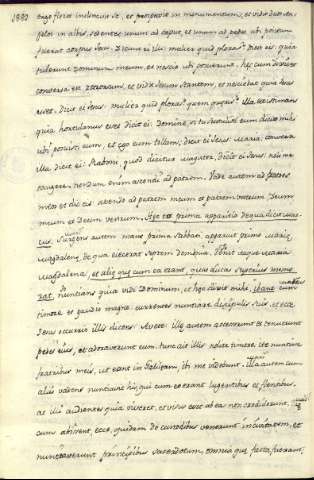 ergo fleret inclinavit se, et prospexit in monumentum, et vidit duos An-
gelos in albis, sedentes unum ad caput, et unum ad pedes ubi positum
fuerat corpus Jesu. Dicunt ei illi mulier quid ploras? Dicit eis: quia
tulerunt Dominum meum, et nescio ubi posuerunt. Hec cum dixisset
conversa est retrorsum, et vidit Jesum stantem, et nesciebat quia Jesus
esset. Dicit ei Jesus: mulier quid ploras? quem quæris? Illa existimans
quia hortulanus esset dicit ei: Domine, si tu sustulisti eum dicito mihi
ubi posuisti eum, et ego eum tollam; dicit ei Jesus: Maria. Conversa
illa dicit ei: Raboni, quod dicitur Magister, dicit ei Jesus, noli me
tangere, nondum enim ascendi ad patrem. Vade autem ad fratres
meos et dic eis: ascendo ad patrem meum et patrem vestrum Deum
meum et Deum vestrum. prima apparitio de qua dicit Mar-
cus. Surgens autem mane prima Sabbati, apparuit primo Mariæ
Magdalene, de qua eiecerat septem demonia. ergo Maria
Magdalena, et aliæ quæ cum ea erant, quas dicas superius memo-
rat, nuncians quia vidi Dominum, et hæc dixit mihi, ibant cum
timore et gaudio magno currentes nunciare discipulis suis, et ecce
Jesus occurrit illis dicens: Avete. Illæ autem accesserunt et tenuerunt
pedes eius, et adoraverunt eum. Tunc ait illis nolite timere, ite nunciate
fratribus meis, ut eant in Galileam, ibi me videbunt. Illa autem cum
aliis vadens nunciavit his, qui cum eo erant lugentibus et flentibus.
at illi audientes quia viveret, et visus esset ab ea non crediderunt,
cum abissent, ecce, quidam de custodibus venerunt in civitatem, et
nunciaverunt principibus sacerdotum, omnia quæ facta fuerant,